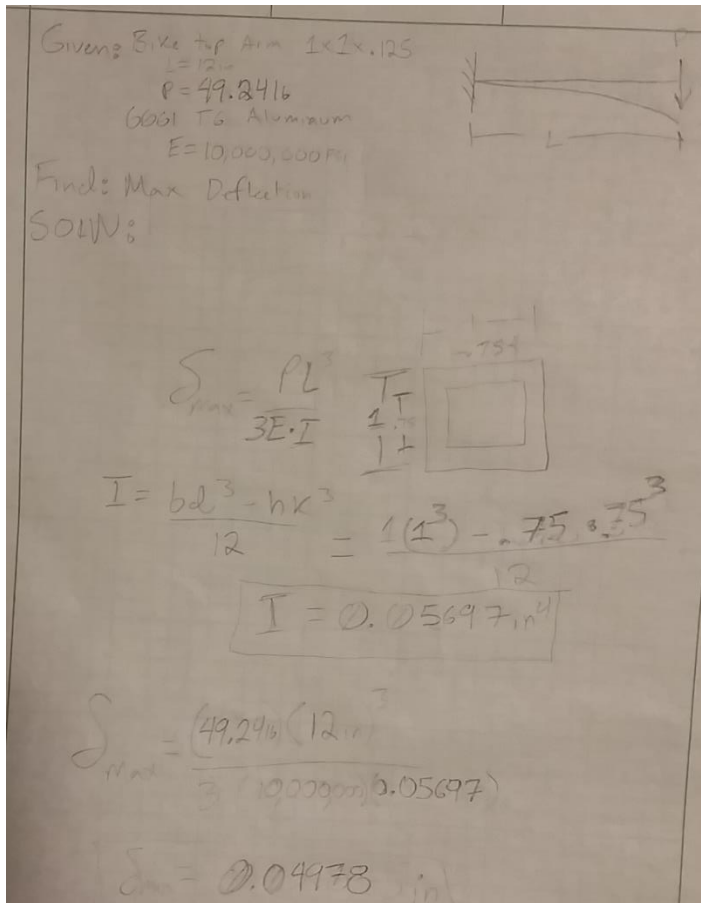 Given: Bike top Arm 1x1x.125
L=12in
P=49.24lb
6061 T6 Aluminum
E=10,000,000 PSI
P
L
Find: Max Deflection
SOLN:
1
.75
δmax = PL³/3E·I
1 .75
I = bd³-hk³/12 = 1(1³)-.75*.75³/12
I = 0.05697 in⁴
δmax = (49.24lb)(12in)³/3(10,000,000)(0.05697)
= 0.04978 in